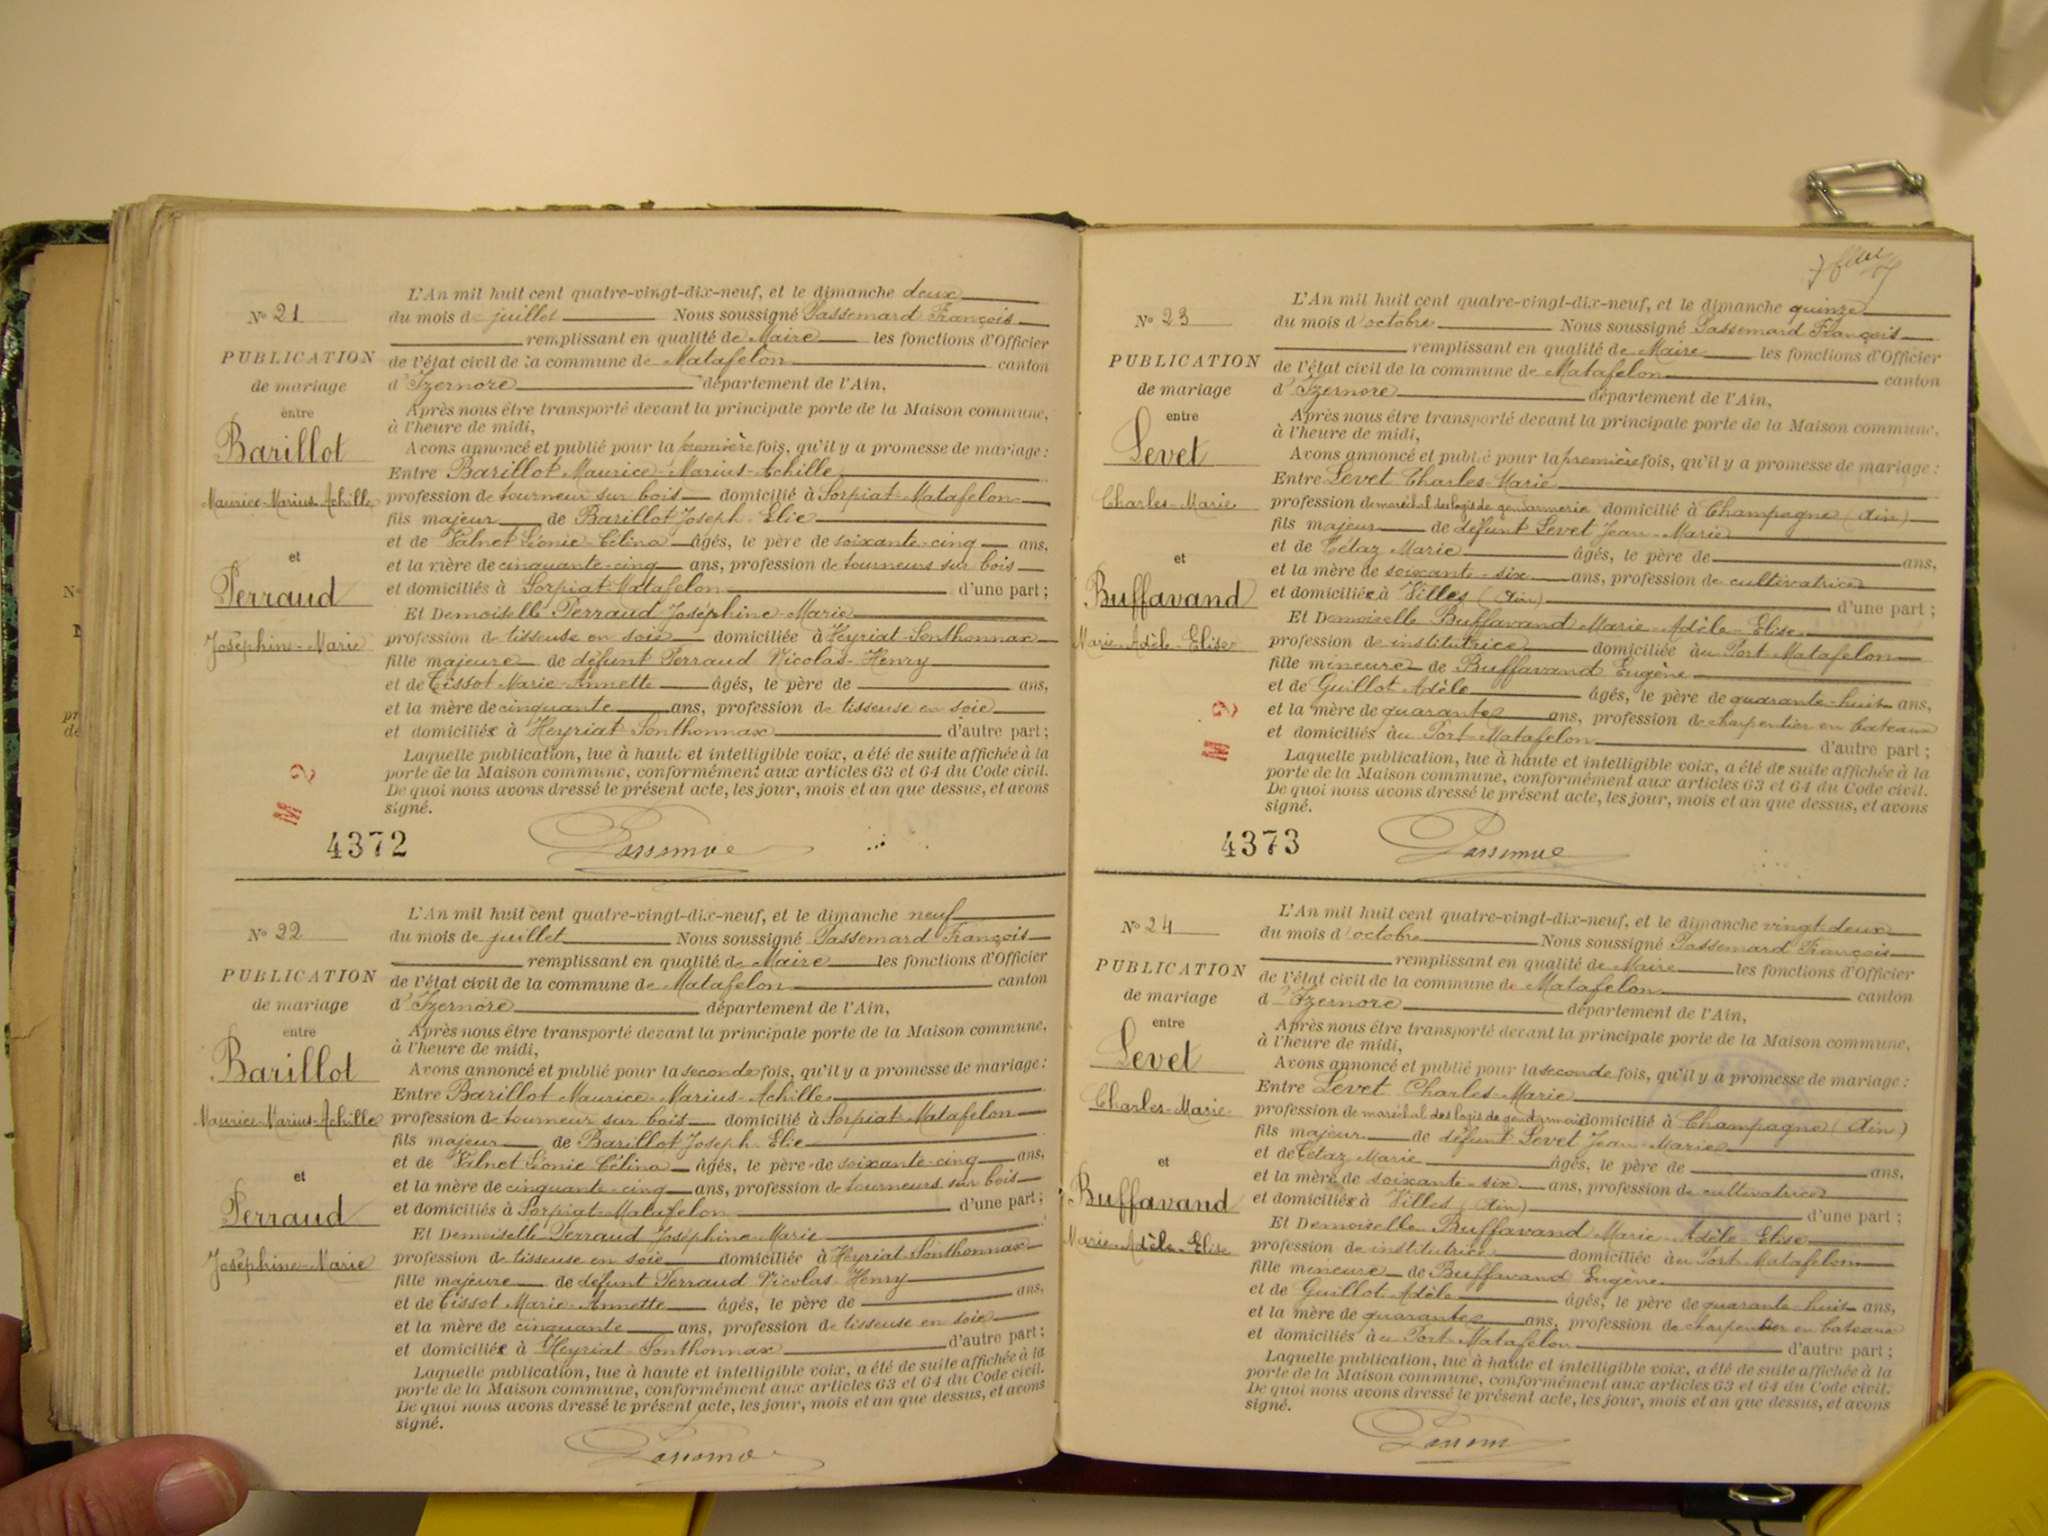 N° 21
PUBLICATION
de mariage
entre
Barillot
Maurice-Marius-Achille
et
Perraud
Joséphine-Marie
L'An mil huit cent quatre-vingt-dix-neuf, et le dimanche deux
du mois de juillet Nous soussigné Passemard François
remplissant en qualité de Maire les fonctions d'Officier
de l'état civil de la commune de Matafelon canton
d'Izernore département de l'Ain,
Après nous être transporté devant la principale porte de la Maison commune,
à l'heure de midi,
Avons annoncé et publié pour la première fois, qu'il y a promesse de mariage :
Entre Barillot Maurice-Marius-Achille
profession de tourneur sur bois domicilié à Sorpiat-Matafelon
fils majeur de Barillot Joseph-Elie
et de Valnet Léonie Célina âgés, le père de soixante-cinq ans,
et la mère de cinquante-cinq ans, profession de tourneurs sur bois
et domiciliés à Sorpiat-Matafelon d'une part ;
Et Demoiselle Perraud Joséphine-Marie
profession de tisseuse en soie domiciliée à Heyriat-Sonthonnax
fille majeure de défunt Perraud Nicolas-Henry
et de Tissot Marie-Annette âgés, le père de ans,
et la mère de cinquante ans, profession de tisseuse en soie
et domiciliée à Heyriat Sonthonnax d'autre part ;
Laquelle publication, lue à haute et intelligible voix, a été de suite affichée à la
porte de la Maison commune, conformément aux articles 63 et 64 du Code civil.
De quoi nous avons dressé le présent acte, les jour, mois et an que dessus, et avons
signé.
M 2
4372
N° 22
PUBLICATION
de mariage
entre
Barillot
Maurice-Marius-Achille
et
Perraud
Joséphine-Marie
L'An mil huit cent quatre-vingt-dix-neuf, et le dimanche neuf
du mois de juillet Nous soussigné Passemard François
remplissant en qualité de Maire les fonctions d'Officier
de l'état civil de la commune de Matafelon canton
d'Izernore département de l'Ain,
Après nous être transporté devant la principale porte de la Maison commune,
à l'heure de midi,
Avons annoncé et publié pour la seconde fois, qu'il y a promesse de mariage :
Entre Barillot Maurice-Marius-Achille
profession de tourneur sur bois domicilié à Sorpiat Matafelon
fils majeur de Barillot Joseph-Elie
et de Valnet Léonie Célina âgés, le père de soixante-cinq ans,
et la mère de cinquante-cinq ans, profession de tourneurs sur bois
et domiciliés à Sorpiat-Matafelon d'une part ;
Et Demoiselle Perraud Joséphine-Marie
profession de tisseuse en soie domiciliée à Heyriat Sonthonnax
fille majeure de défunt Perraud Nicolas-Henry
et de Tissot Marie-Annette âgés, le père de ans,
et la mère de cinquante ans, profession de tisseuse en soie
et domiciliée à Heyriat-Sonthonnax d'autre part ;
Laquelle publication, lue à haute et intelligible voix, a été de suite affichée à la
porte de la Maison commune, conformément aux articles 63 et 64 du Code civil.
De quoi nous avons dressé le présent acte, les jour, mois et an que dessus, et avons
signé.
N° 23
PUBLICATION
de mariage
entre
Levet
Charles-Marie
et
Buffavand
Marie-Adèle-Elise
L'An mil huit cent quatre-vingt-dix-neuf, et le dimanche quinze
du mois d'octobre Nous soussigné Passemard François
remplissant en qualité de Maire les fonctions d'Officier
de l'état civil de la commune de Matafelon canton
d'Izernore département de l'Ain,
Après nous être transporté devant la principale porte de la Maison commune,
à l'heure de midi,
Avons annoncé et publié pour la première fois, qu'il y a promesse de mariage :
Entre Levet Charles-Marie
profession de maréchal des logis de gendarmerie domicilié à Champagne (Ain)
fils majeur de défunt Levet Jean-Marie
et de Tétaz Marie âgés, le père de ans,
et la mère de soixante-six ans, profession de cultivatrice
et domiciliée à Villes (Ain) d'une part ;
Et Demoiselle Buffavand Marie-Adèle-Elise
profession de institutrice domiciliée au Port-Matafelon
fille mineure de Buffavand Eugène
et de Guillot Adèle âgés, le père de quarante-huit ans,
et la mère de quarante ans, profession de charpentier en bateaux
et domiciliés au Port-Matafelon d'autre part ;
Laquelle publication, lue à haute et intelligible voix, a été de suite affichée à la
porte de la Maison commune, conformément aux articles 63 et 64 du Code civil.
De quoi nous avons dressé le présent acte, les jour, mois et an que dessus, et avons
signé.
M 2
4373
N° 24
PUBLICATION
de mariage
entre
Levet
Charles-Marie
et
Buffavand
Marie-Adèle-Elise
L'An mil huit cent quatre-vingt-dix-neuf, et le dimanche vingt-deux
du mois d'octobre Nous soussigné Passemard François
remplissant en qualité de Maire les fonctions d'Officier
de l'état civil de la commune de Matafelon canton
d'Izernore département de l'Ain,
Après nous être transporté devant la principale porte de la Maison commune,
à l'heure de midi,
Avons annoncé et publié pour la seconde fois, qu'il y a promesse de mariage :
Entre Levet Charles-Marie
profession de maréchal des logis de gendarmerie domicilié à Champagne (Ain)
fils majeur de défunt Levet Jean-Marie
et de Tétaz Marie âgés, le père de ans,
et la mère de soixante-six ans, profession de cultivatrice
et domiciliée à Villes (Ain) d'une part ;
Et Demoiselle Buffavand Marie-Adèle-Elise
profession de institutrice domiciliée au Port-Matafelon
fille mineure de Buffavand Eugène
et de Guillot-Adèle âgés, le père de quarante-huit ans,
et la mère de quarante ans, profession de charpentier en bateaux
et domiciliés au Port-Matafelon d'autre part ;
Laquelle publication, lue à haute et intelligible voix, a été de suite affichée à la
porte de la Maison commune, conformément aux articles 63 et 64 du Code civil.
De quoi nous avons dressé le présent acte, les jour, mois et an que dessus, et avons
signé.